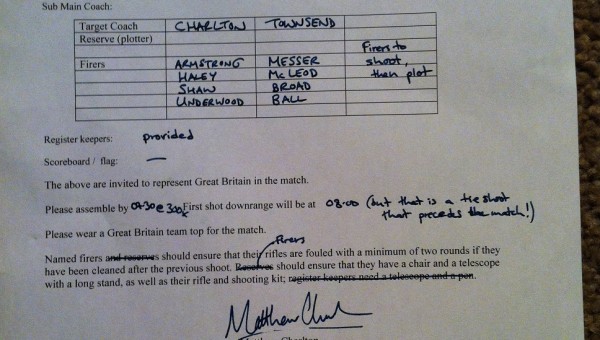 Sub Main Coach:
Target Coach CHARLTON TOWNSEND
Reserve (plotter)
Firers ARMSTRONG MESSER Firers to
HALEY McLEOD shoot,
SHAW BROAD then plot
UNDERWOOD BALL
Register keepers: provided
Scoreboard / flag: —
The above are invited to represent Great Britain in the match.
Please assemble by 07:30 @ 300x First shot downrange will be at 08:00 (but that is a tie shoot
that precedes the match!)
Please wear a Great Britain team top for the match.
Named firers and reserves should ensure that their rifles are fouled with a minimum of two rounds if they
have been cleaned after the previous shoot. Reserves Firers should ensure that they have a chair and a telescope
with a long stand, as well as their rifle and shooting kit; register keepers need a telescope and a pen.
Matthew Charlton